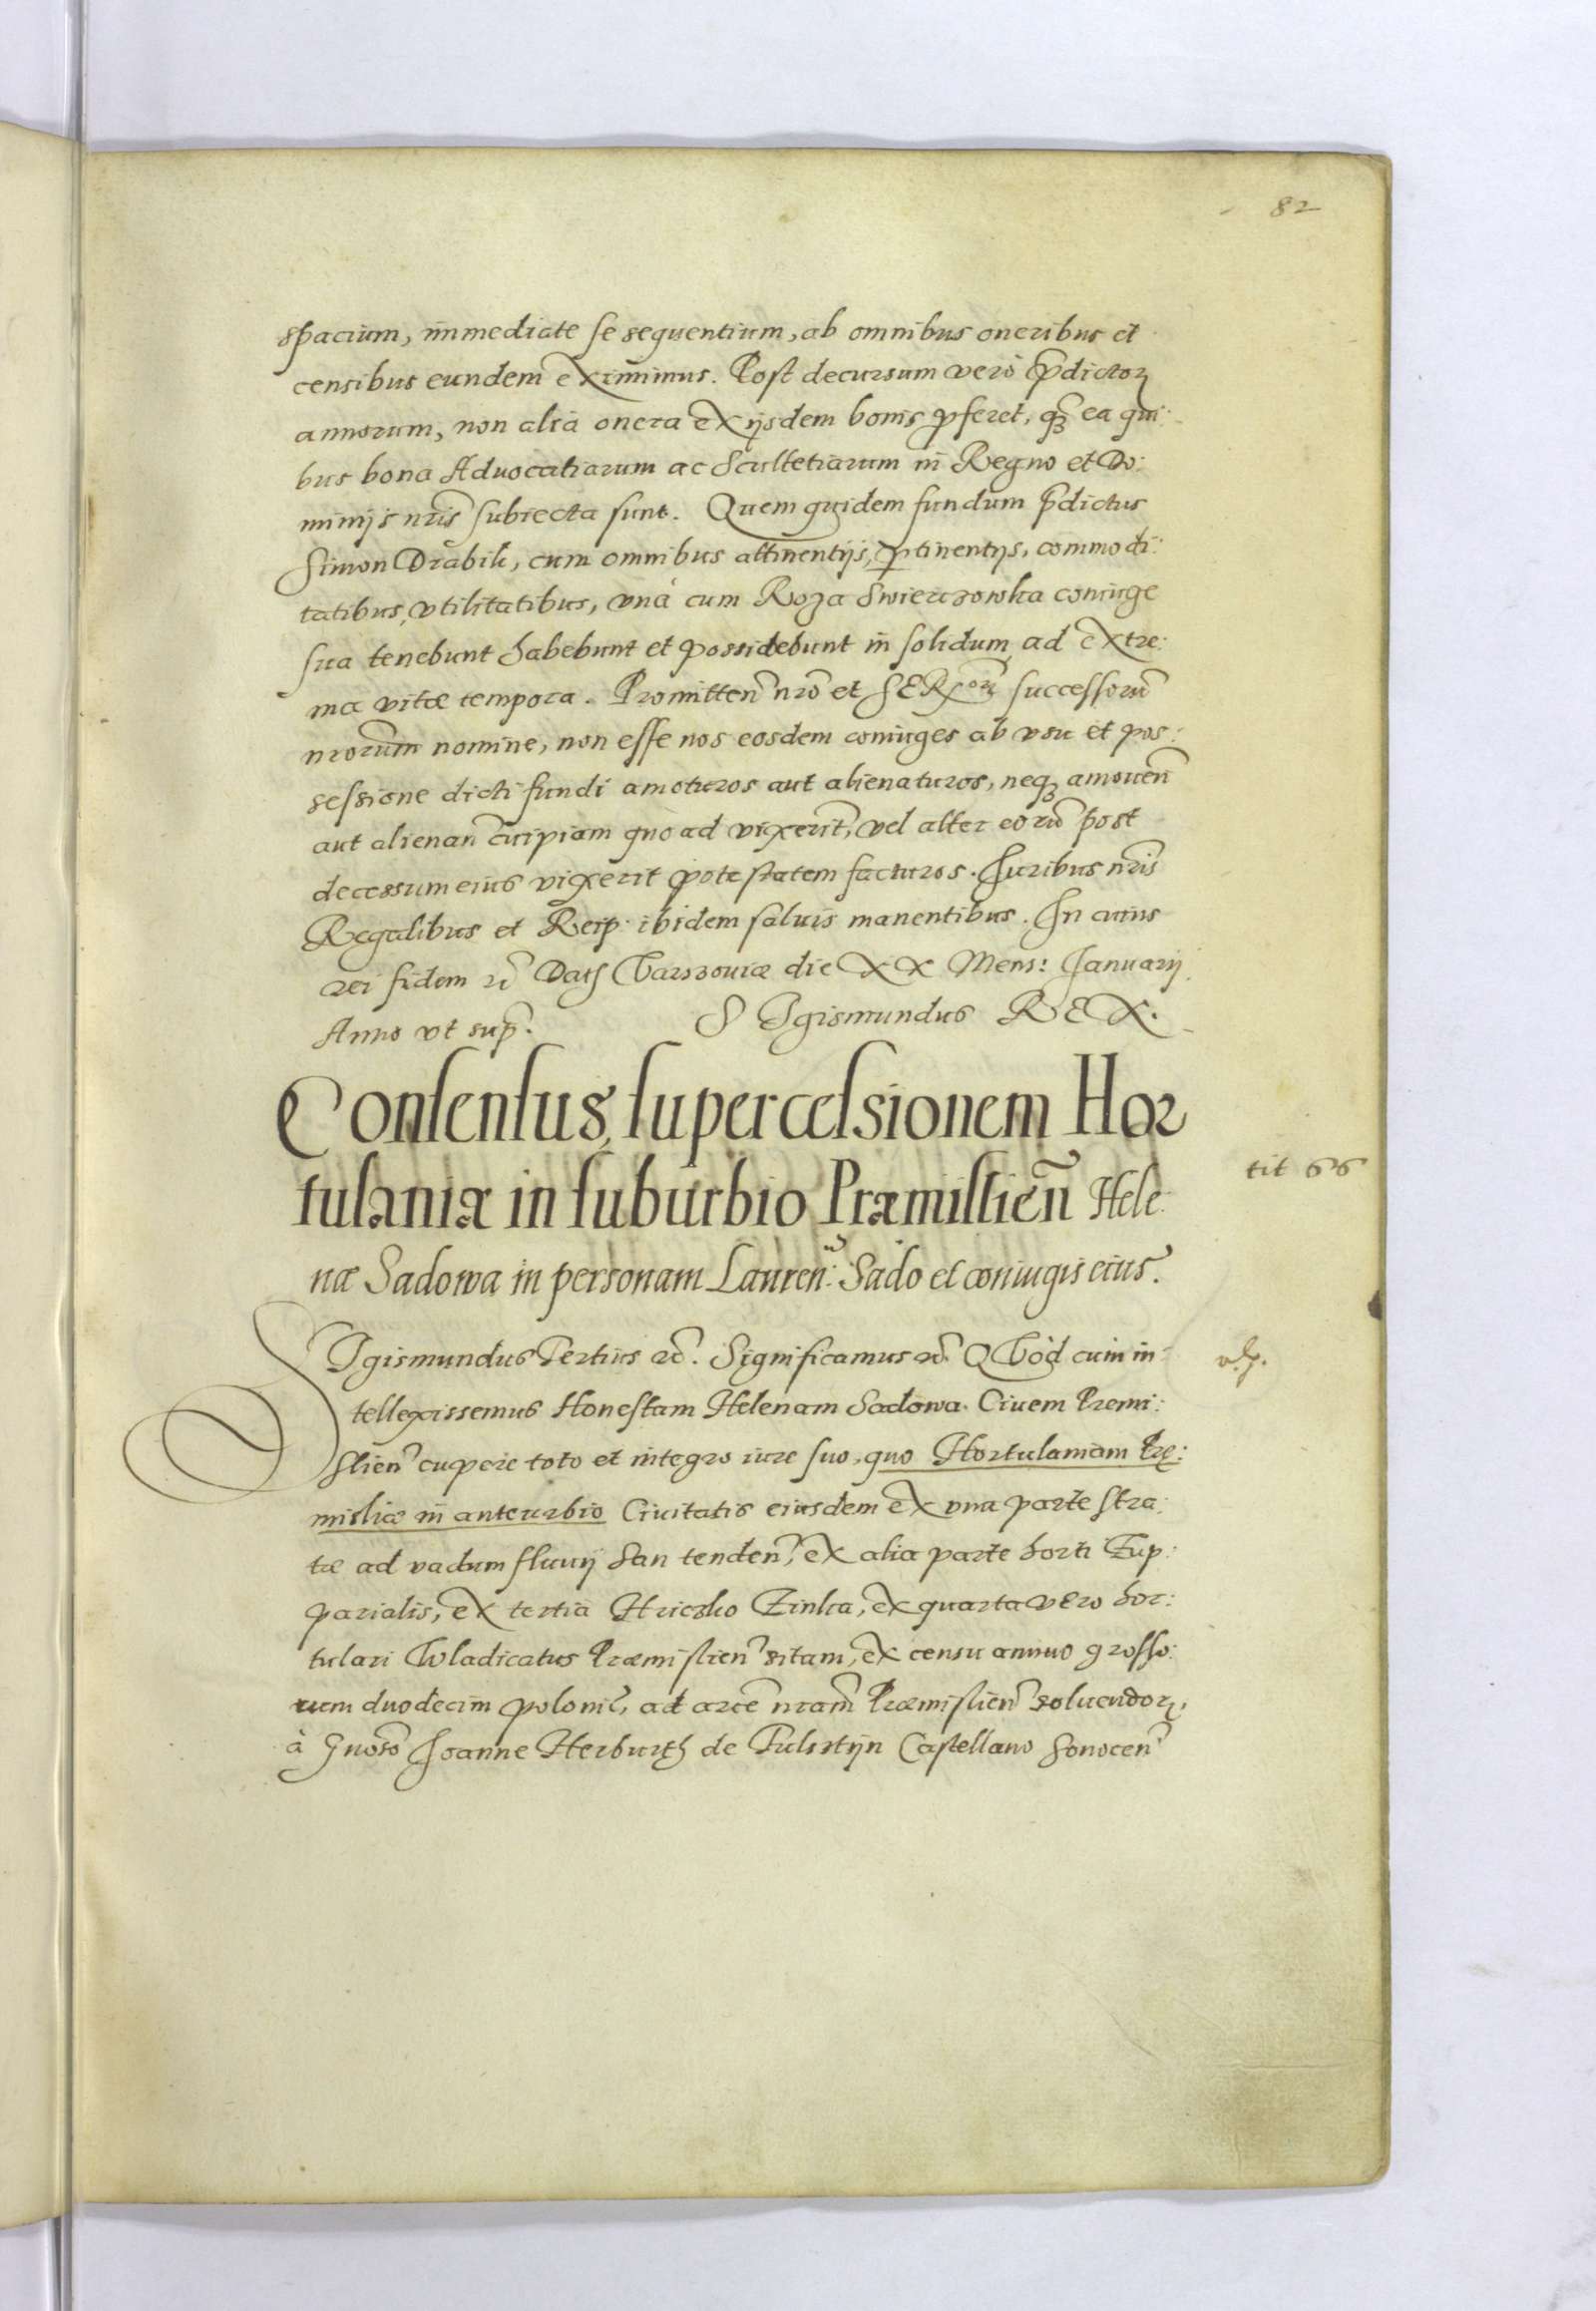 82
spacium, immediate se sequentium, ab omnibus oneribus et
censibus eundem eximimus. Post decursum verò p̄dictoꝝ
annorum, non alia onera ex ijsdem bonis p̱feret, qꝫ̄ ea qui:
bus bona Advocatiarum ac Scultetiarum in Regno et Do:
minijs nr̄is subiecta sunt. Quem quidem fundum p̄dictus
Simon Drabik, cum omnibus attinentijs, ꝑtinentijs, commodi:
tatibus, vtilitatibus, vnà cum Roza Swierczowka coniuge
sua tenebunt habebunt et possidebunt in solidum ad extre:
ma vitæ tempora. Promitten̄ nrō et SERꝫoꝝ successorū
nrorum̄ nomine, non esse nos eosdem coniuges ab vsu et pos:
sessione dicti fundi amoturos aut alienaturos, neqꝫ amouen̄
aut alienan̄ cuipiam quo ad vixerit, vel alter eorū post
decessum eius vixerit potestatem facturos. Iuribus nr̄is
Regalibus et Reip: ibidem saluis manentibus. In cuius
rei fidem ꝛc̄ Dat̄ Varszouiæ die XX Mens: Januarij
Anno vt sup̄. SIgismundus REX.
Consensus, super cessionem Hor
tulaniæ in suburbio Præmislien̄ Hele:
næ Sadowa in personam Lauren̄: Sado et coniugis eius.
tit 66
SIgismundus Tertius ꝛc̄. Significamus ꝛc̄. QVòd cum in:
tellexissemus Honestam Helenam Sadowa. Ciuem Premi:
slien̄ cupere toto et integro iure suo, quo Hortulaniam Prę:
misliæ in anteurbio Ciuitatis eiusdem ex vna parte stra:
tæ ad vadum fluuij San tenden̄, ex alia parte horti Zup:
parialis, ex tertia Hriczko Zinka, ex quarta vero hor:
tulari Wladicatus Præmislien̄ sitam, ex censu annuo grosso:
rum duodecim polonic̄, ad arcē nram̄ Præmislien̄ soluendoꝝ,
à Gnōso Joanne Herburth de Fulsztijn Castellano Sonocen̄